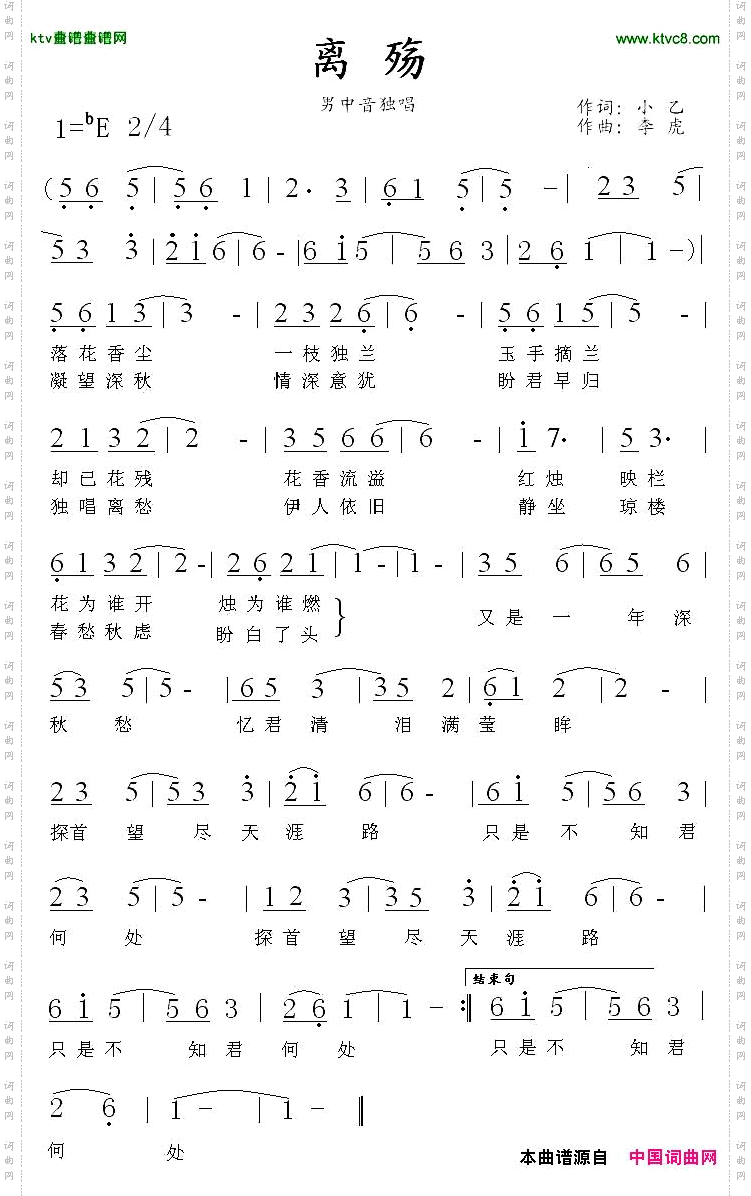 ktv盡谱盡谱网
www.ktvc8.com
离殇
男中音独唱
1=ᵇE 2/4
作词：小乙
作曲：李虎
(5 6 5 | 5 6 1 | 2· 3 | 6 1 5 | 5 - | 2 3 5 |
5 3 3 | 2 i 6 | 6 - | 6 i 5 | 5 6 3 | 2 6 1 | 1 -) |
5 6 1 3 | 3 - | 2 3 2 6 | 6 - | 5 6 1 5 | 5 - |
落花香尘 一枝独兰 玉手摘兰
凝望深秋 情深意犹 盼君早归
2 1 3 2 | 2 - | 3 5 6 6 | 6 - | i 7· | 5 3· |
却已花残 花香流溢 红烛 映栏
独唱离愁 伊人依旧 静坐 琼楼
6 1 3 2 | 2 - | 2 6 2 1 | 1 - | 1 - | 3 5 6 | 6 5 6 |
花为谁开 烛为谁燃 又是一 年深
春愁秋虑 盼白了头
5 3 5 | 5 - | 6 5 3 | 3 5 2 | 6 1 2 | 2 - |
秋 愁 忆君清 泪满莹 眸
2 3 5 | 5 3 3 | 2 i 6 | 6 - | 6 i 5 | 5 6 3 |
探首 望 尽天涯 路 只是不 知君
2 3 5 | 5 - | 1 2 3 | 3 5 3 | 2 i 6 | 6 - |
何 处 探首 望 尽天涯 路
结束句
6 i 5 | 5 6 3 | 2 6 1 | 1 - :‖ 6 i 5 | 5 6 3 |
只是不 知君何 处 只是不 知君
2 6 | 1 - | 1 - ‖
何 处
本曲谱源自 中国词曲网
词曲网